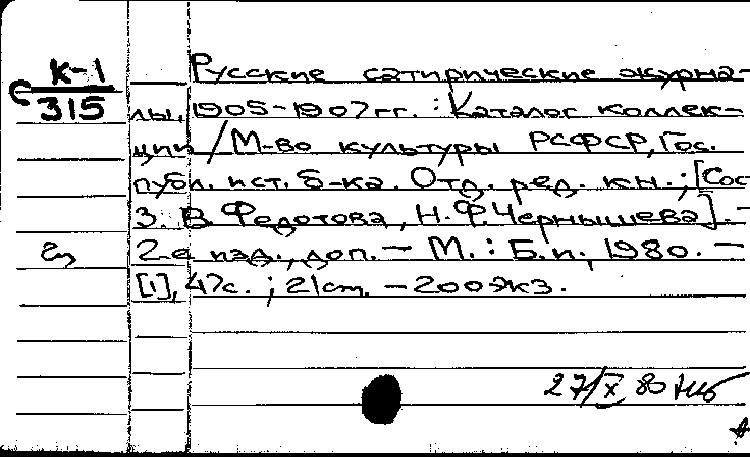 К-1
С 315
Русские сатирические журна-
лы, 1905-1907 гг. : Каталог коллек-
ции / М-во культуры РСФСР, Гос.
публ. ист. б-ка. Отд. ред. кн. ; [Сос
З. В. Федотова, Н. Ф. Чернышева]. –
2-е изд., доп. – М. : Б. и., 1980. –
[1], 47 с. ; 21 cm. – 200 экз.
27/X 80